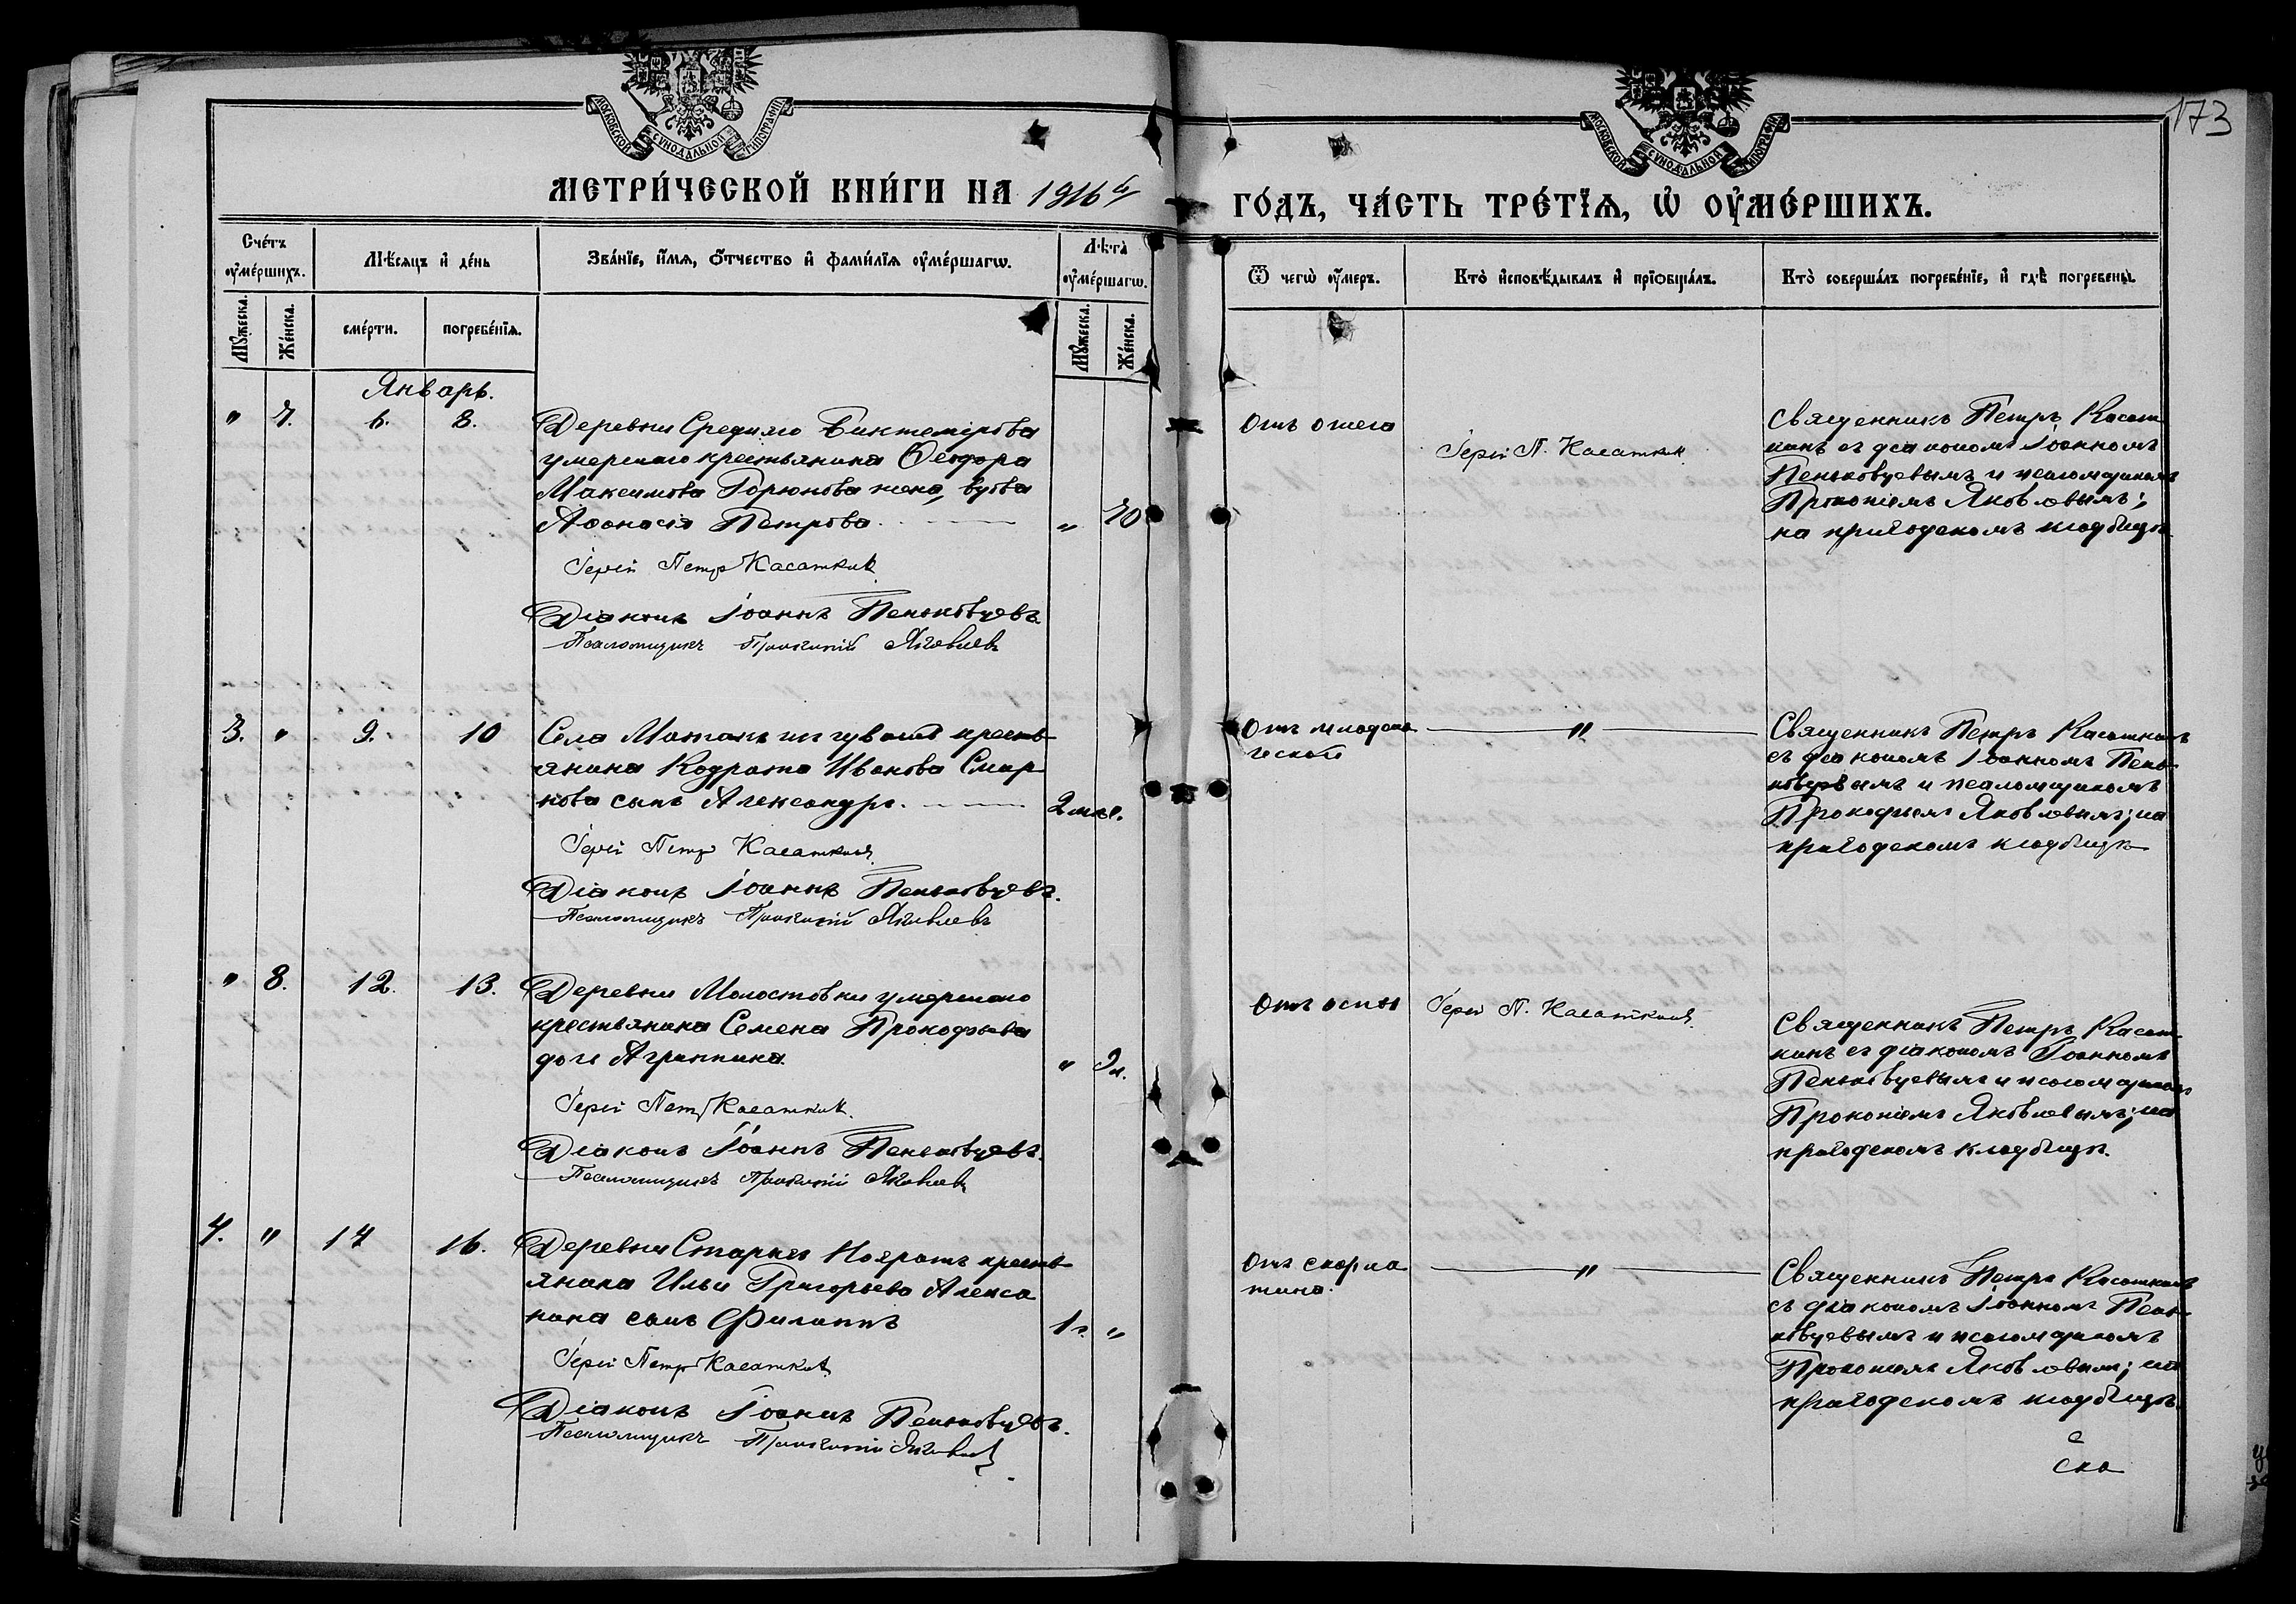 173
МОСКОВСКОЙ СѴНОДАЛЬНОЙ ТИПОГРАФІИ
МОСКОВСКОЙ СѴНОДАЛЬНОЙ ТИПОГРАФІИ
МЕТРИ́ЧЕСКОЙ КНИ́ГИ НА 1916й ГО́ДЪ, ЧА́СТЬ ТРЕ́ТЇѦ, Ѡ҆ ОУ҆МЕ́РШИХЪ.
Сче́тъ оу҆ме́ршихъ.
Мѣ́сяцъ и҆ де́нь
Зва́нїе, и҆́мѧ, ѻ҆́тчество и҆ фами́лїѧ оу҆ме́ршагѡ.
Лѣ́та оу҆ме́ршагѡ.
Ѿ чегѡ̀ оу҆́меръ.
Кто̀ и҆сповѣ́дывалъ и҆ прїѡбща́лъ.
Кто̀ соверша́лъ погребе́нїе, и҆ гдѣ̀ погребены̀.
Мꙋ́жеска. Же́нска. сме́рти. погребе́нїѧ. Мꙋ́жеска. Же́нска.
Январь.
" 7. 6. 8.
Деревни Средняго Биктемірова
умершаго крестьянина Ѳеодора
Максимова Горюнова жена, вдова
Аѳанасія Петрова.
" 70
Іерей Петр Касаткин
Діаконъ Іоаннъ Пеньковцевъ.
Псаломщикъ Прокопій Яковлевъ
Отъ ошега
Іерей П. Касаткин
Священникъ Петръ Касат
кинъ съ діакономъ Іоанномъ
Пеньковцевымъ и псаломщикомъ
Прокопіемъ Яковлевымъ;
на приходскомъ кладбищѣ
3. " 9. 10
Села Матакъ изъ чувашъ кресть
янина Кодрата Иванова Смир
нова сынъ Александръ.
2 мѣс.
Іерей Петр Касаткин
Діаконъ Іоаннъ Пеньковцевъ.
Псаломщикъ Прокопій Яковлевъ
Отъ младен
ческой
"
Священникъ Петръ Касаткинъ
съ діакономъ Іоанномъ Пень
ковцевымъ и псаломщикомъ
Прокофіемъ Яковлевымъ; на
приходскомъ кладбищѣ
" 8. 12. 13.
Деревни Молостовки умершаго
крестьянина Семена Прокофьева
дочь Агриппина.
"
Іерей Петр Касаткин.
Діаконъ Іоаннъ Пеньковцевъ.
Псаломщикъ Прокопій Яковлевъ
Отъ оспы
Іерей П. Касаткин.
Священникъ Петръ Касат
кинъ съ діакономъ Іоанномъ
Пеньковцевымъ и псаломщикомъ
Прокопіемъ Яковлевымъ; на
приходскомъ кладбищѣ.
4. " 14 16.
Деревни Старыхъ Ногратъ кресть
янина Ильи Григорьева Алекса
нина сынъ Филиппъ
1 г. "
Іерей Петр Касаткин
Діаконъ Іоаннъ Пеньковцевъ.
Псаломщикъ Прокопій Яковлевъ
Отъ скарла
тина.
"
Священникъ Петръ Касаткинъ
съ діакономъ Іоанномъ Пень
ковцевымъ и псаломщикомъ
Прокопіемъ Яковлевымъ; на
приходскомъ кладбищѣ.
ска